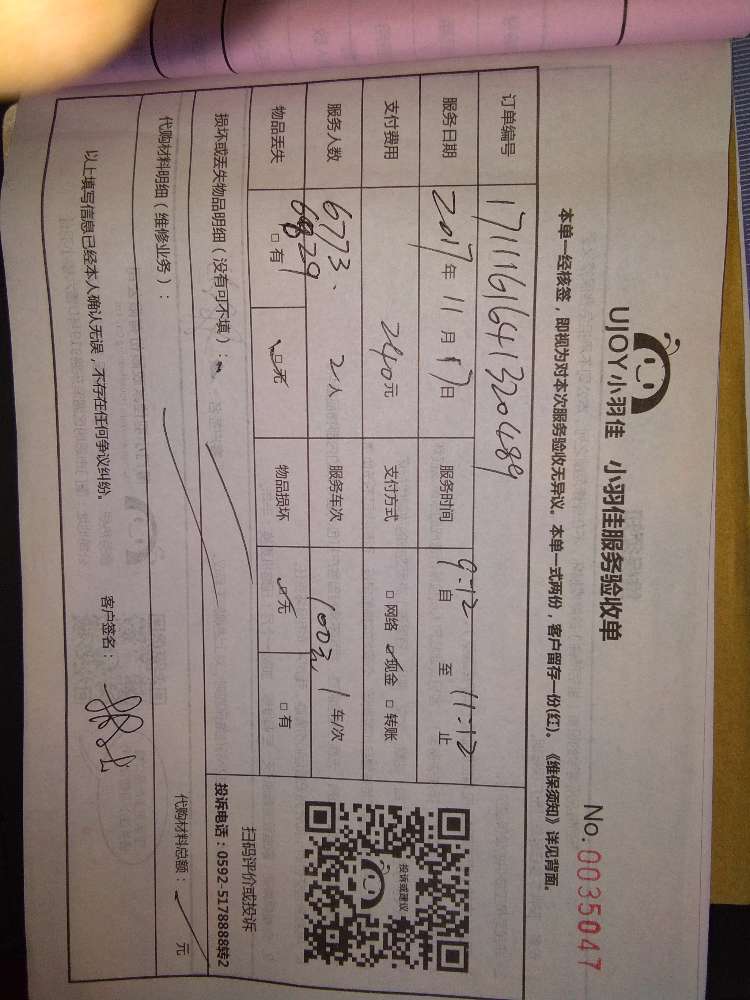 UJOY小羽佳 小羽佳服务验收单
No.0035047
本单一经核签，即视为对本次服务验收无异议。本单一式两份，客户留存一份(红)。《维保须知》详见背面。
订单编号 1711161641320489
服务日期 2017年 11月 17日 服务时间 9:12自 至 11:12止
支付费用 240元 支付方式 □ 网络 ☑现金 □ 转账
服务人数 6773、6829 2人 服务车次 100元 1车/次
物品丢失 □ 有 ☑无 物品损坏 ☑无 □ 有
投诉或建议
扫码评价或投诉
投诉电话：0592-5178888转2
损坏或丢失物品明细（没有可不填）：
代购材料明细（维修业务）： 代购材料总额： 元
以上填写信息已经本人确认无误，不存在任何争议纠纷。 客户签名：